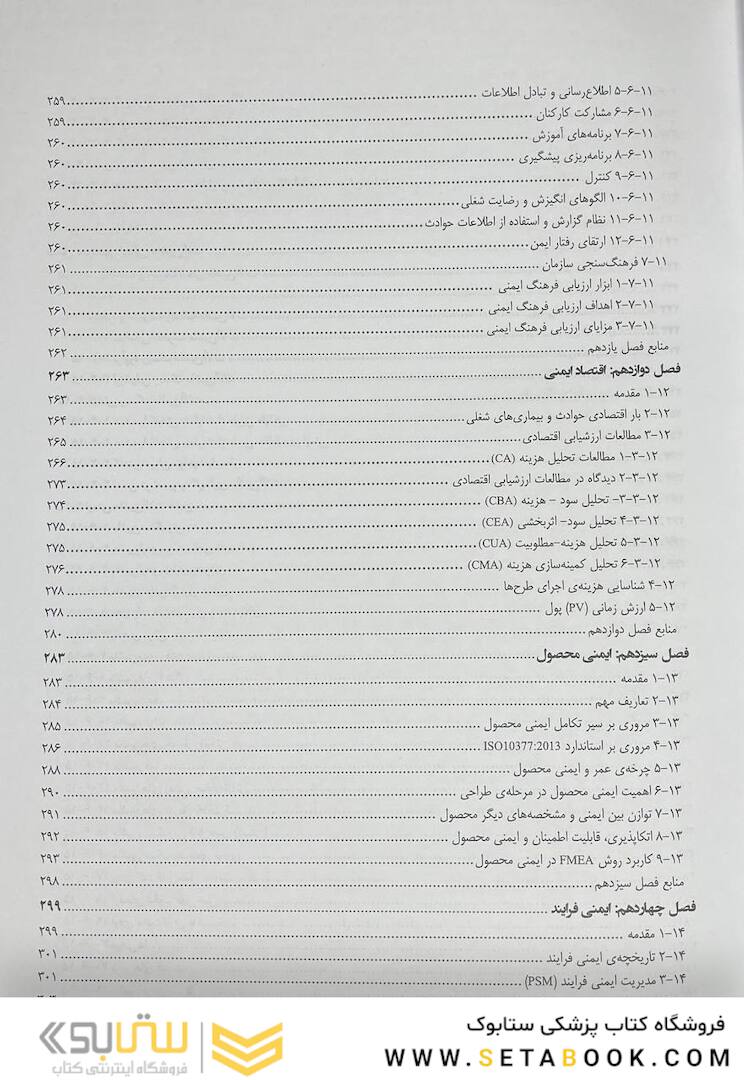 ۵-۶-۱۱ اطلاع‌رسانی و تبادل اطلاعات ۲۵۹
۶-۶-۱۱ مشارکت کارکنان ۲۵۹
۷-۶-۱۱ برنامه‌های آموزش ۲۶۰
۸-۶-۱۱ برنامه‌ریزی پیشگیری ۲۶۰
۹-۶-۱۱ کنترل ۲۶۰
۱۰-۶-۱۱ الگوهای انگیزش و رضایت شغلی ۲۶۰
۱۱-۶-۱۱ نظام گزارش و استفاده از اطلاعات حوادث ۲۶۰
۱۲-۶-۱۱ ارتقای رفتار ایمن ۲۶۰
۷-۱۱ فرهنگ‌سنجی سازمان ۲۶۱
۱-۷-۱۱ ابزار ارزیابی فرهنگ ایمنی ۲۶۱
۲-۷-۱۱ اهداف ارزیابی فرهنگ ایمنی ۲۶۱
۳-۷-۱۱ مزایای ارزیابی فرهنگ ایمنی ۲۶۱
منابع فصل یازدهم ۲۶۲
فصل دوازدهم: اقتصاد ایمنی ۲۶۳
۱-۱۲ مقدمه ۲۶۳
۲-۱۲ بار اقتصادی حوادث و بیماری‌های شغلی ۲۶۴
۳-۱۲ مطالعات ارزشیابی اقتصادی ۲۶۵
۱-۳-۱۲ مطالعات تحلیل هزینه (CA) ۲۶۶
۲-۳-۱۲ دیدگاه در مطالعات ارزشیابی اقتصادی ۲۷۳
۳-۳-۱۲- تحلیل سود - هزینه (CBA) ۲۷۴
۴-۳-۱۲ تحلیل سود- اثربخشی (CEA) ۲۷۵
۵-۳-۱۲ تحلیل هزینه-مطلوبیت (CUA) ۲۷۵
۶-۳-۱۲ تحلیل کمینه‌سازی هزینه (CMA) ۲۷۶
۴-۱۲ شناسایی هزینه‌ی اجرای طرح‌ها ۲۷۸
۵-۱۲ ارزش زمانی (PV) پول ۲۷۸
منابع فصل دوازدهم ۲۸۰
فصل سیزدهم: ایمنی محصول ۲۸۳
۱-۱۳ مقدمه ۲۸۳
۲-۱۳ تعاریف مهم ۲۸۴
۳-۱۳ مروری بر سیر تکامل ایمنی محصول ۲۸۵
۴-۱۳ مروری بر استاندارد ISO10377:2013 ۲۸۶
۵-۱۳ چرخه‌ی عمر و ایمنی محصول ۲۸۸
۶-۱۳ اهمیت ایمنی محصول در مرحله‌ی طراحی ۲۹۰
۷-۱۳ توازن بین ایمنی و مشخصه‌های دیگر محصول ۲۹۱
۸-۱۳ اتکاپذیری، قابلیت اطمینان و ایمنی محصول ۲۹۲
۹-۱۳ کاربرد روش FMEA در ایمنی محصول ۲۹۳
منابع فصل سیزدهم ۲۹۸
فصل چهاردهم: ایمنی فرایند ۲۹۹
۱-۱۴ مقدمه ۲۹۹
۲-۱۴ تاریخچه‌ی ایمنی فرایند ۳۰۱
۳-۱۴ مدیریت ایمنی فرایند (PSM) ۳۰۱
فروشگاه کتاب پزشکی ستابوک
WWW.SETABOOK.COM
ستابوک
فروشگاه اینترنتی کتاب